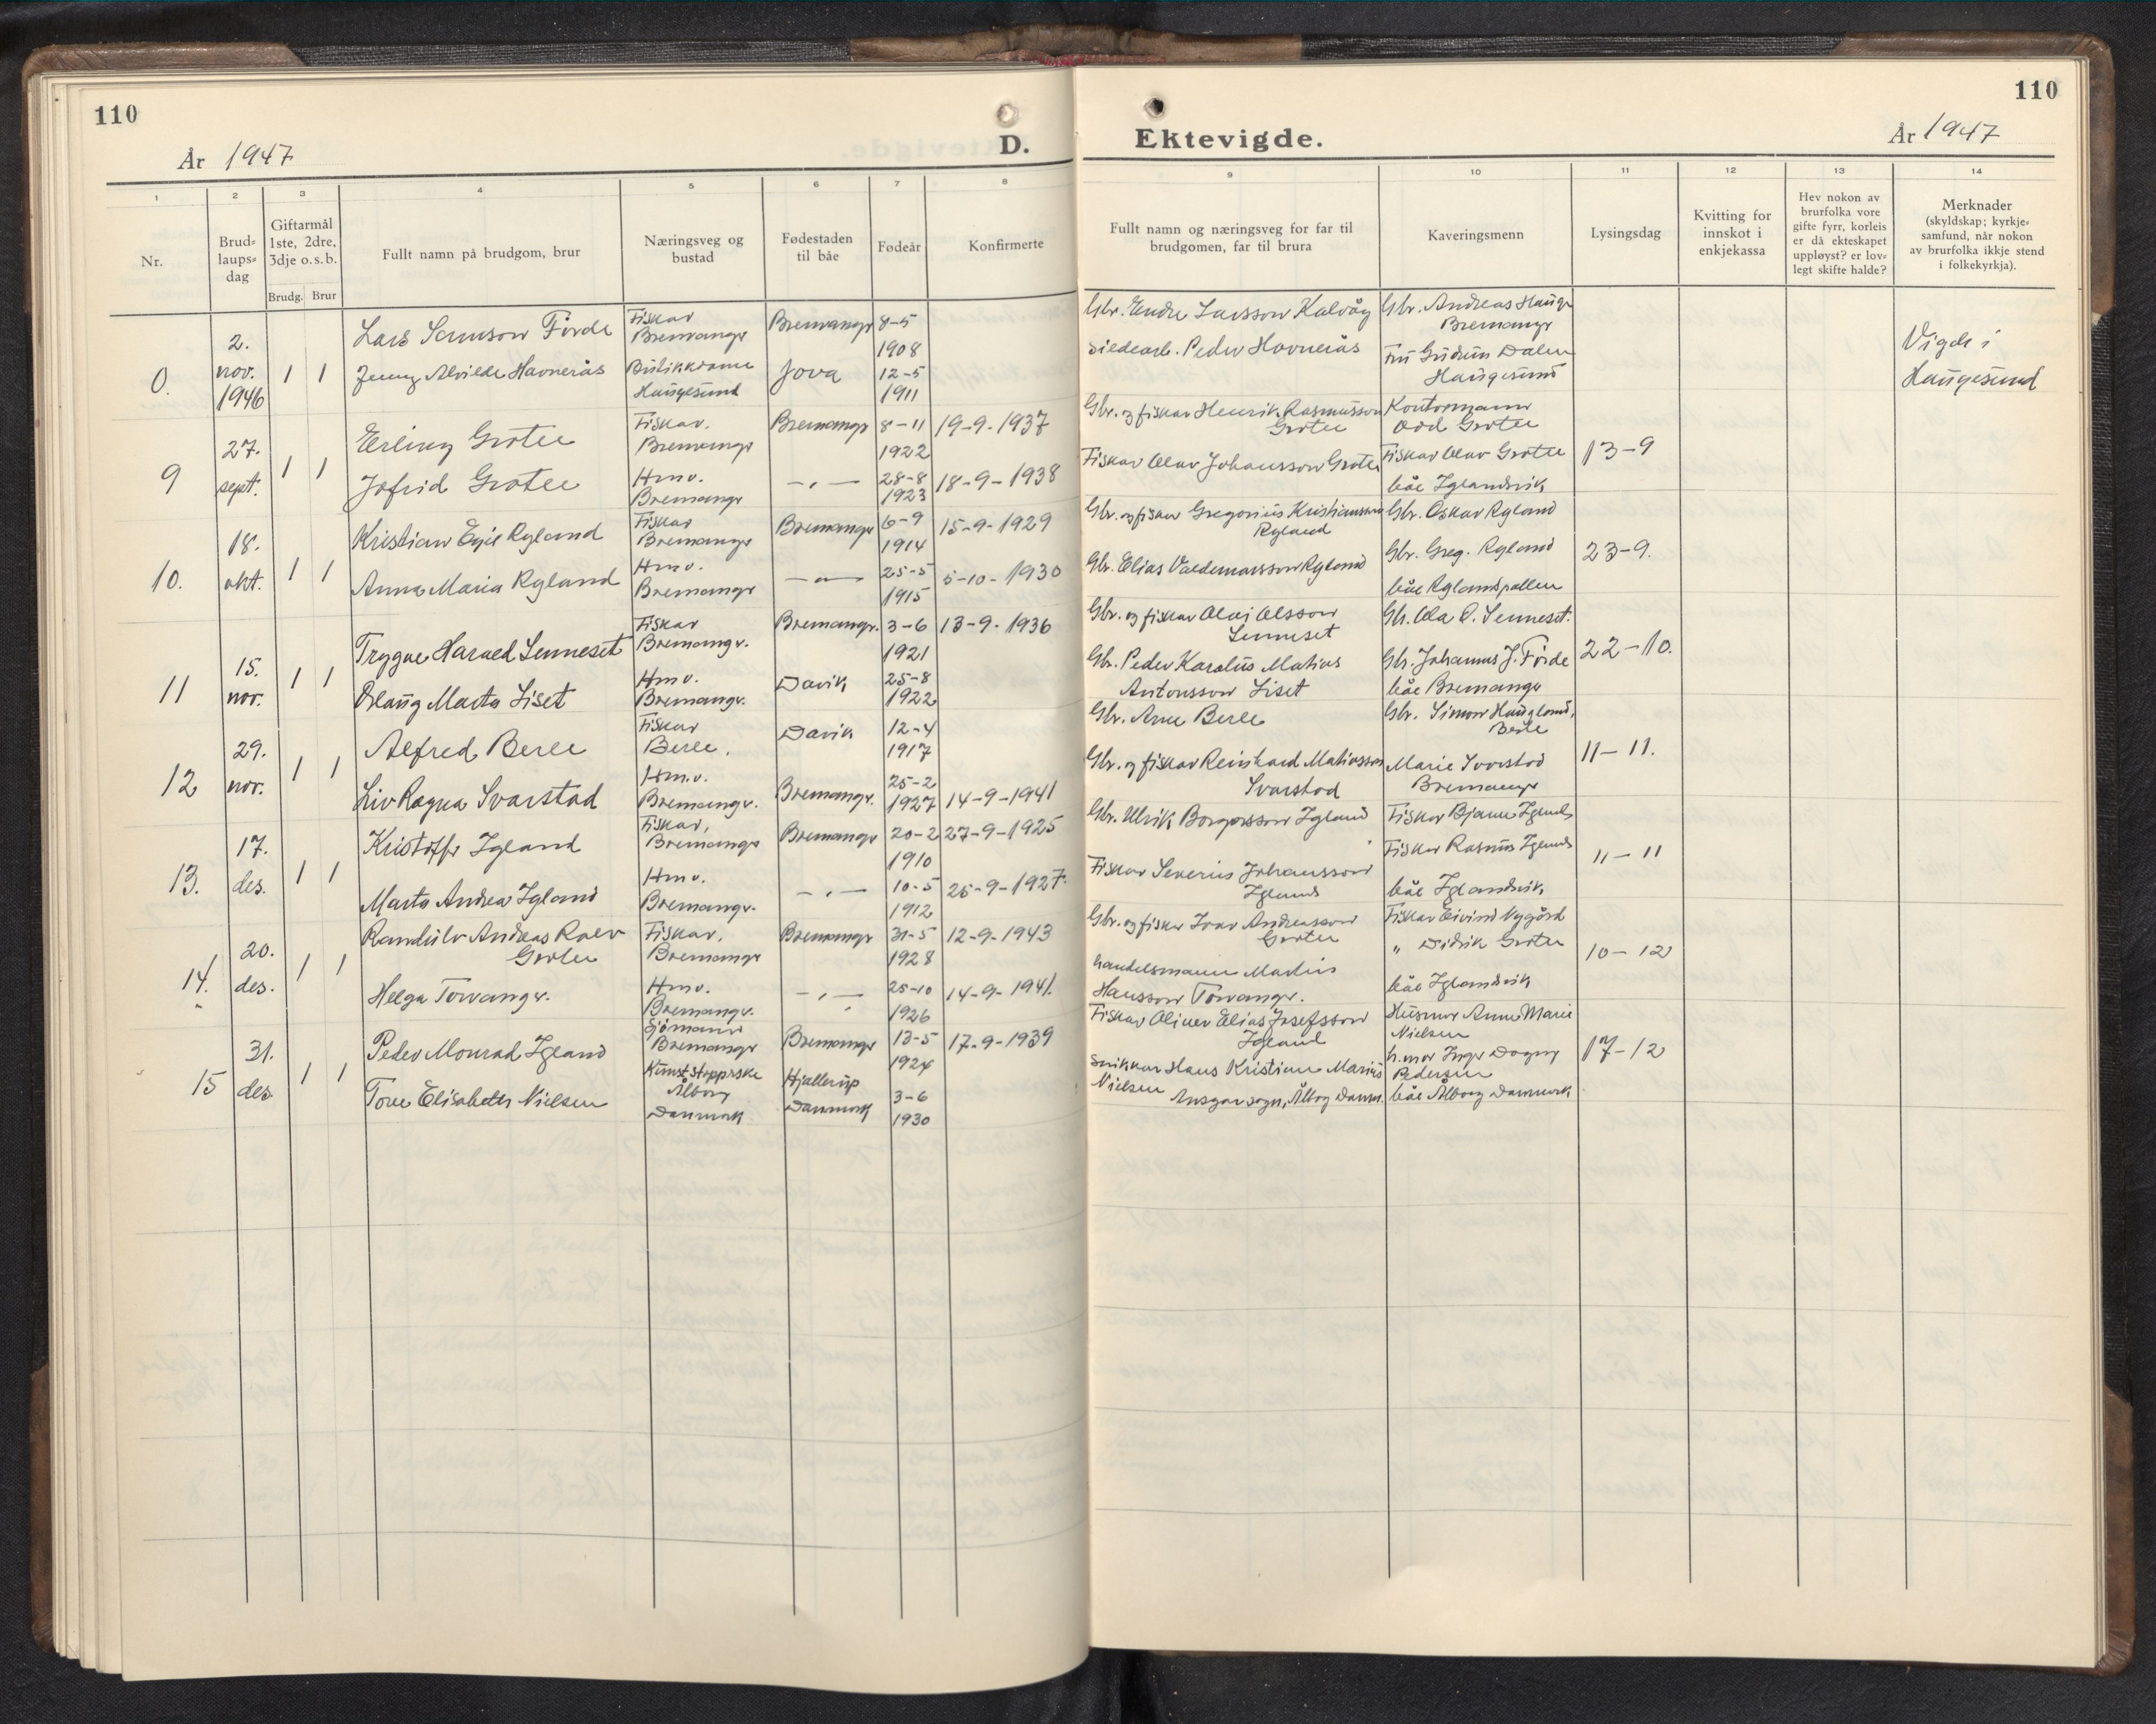 110
År 1947
D.
1 2 3 4 5 6 7 8
Nr.
Brud=
laups=
dag
Giftarmål
1ste, 2dre,
3dje o.s.b.
Brudg. Brur
Fullt namn på brudgom, brur
Næringsveg og
bustad
Fødestaden
til båe
Fødeår
Konfirmerte
0.
2.
nov.
1946
1 1
Lars Førde
Jenny Alvilde Havnerås
Fiskar
Bremanger
Butikkdame
Haugesund
Bremanger
8-5
1908
12-5
1911
9
27.
sept.
1 1
Erling Grotle
Jofrid Grotle
Fiskar.
Bremanger
Hmv.
Bremanger
Bremanger
— „ —
8-11
1922
28-8
1923
19-9-1937
18-9-1938
10.
18.
okt.
1 1
Kristian Egil Rylund
Anna Maria Rylund
Fiskar
Bremanger
Hmv.
Bremanger
Bremanger
— „ —
6-9
1914
25-5
1915
15-9-1929
5-10-1930
11
15.
nov.
1 1
Trygve Harald Senneset
Oslaug Marta Liset
Fiskar
Bremangr.
Hmv.
Bremangr.
Bremangr.
Davik
3-6
1921
25-8
1922
13-9-1936
12
29.
nov.
1 1
Alfred Berle
Liv Ragna Svarstad
Fiskar
Berle.
Hm.v.
Bremangr.
Davik
Bremangr.
12-4
1917
25-2
1927
14-9-1941
13.
17.
des.
1 1
Kristoffer Igland
Marta Andrea Igland
Fiskar,
Bremanger
Hmv.
Bremangr.
Bremanger
— „ —
20-2
1910
10-5
1912
27-9-1925
25-9-1927
14.
20.
des.
1 1
Randulv Andreas
Grotle
Helga Torvangr.
Fiskar.
Bremanger
Hmv.
Bremangr.
Bremanger
— „ —
31-5
1928
25-10
1926
12-9-1943
14-9-1941.
15
31.
des.
1 1
Peder Monrad Igland
Tove Elisabeth Nielsen
Sjømann
Bremanger
Kunststopperske
Ålborg
Danmark
Bremanger
Hjallerup
Danmark
13-5
1924
3-6
1930
17-9-1939
110
Ektevigde.
År 1947
9 10 11 12 13 14
Fullt namn og næringsveg for far til
brudgomen, far til brura
Kaveringsmenn
Lysingsdag
Kvitting for
innskot i
enkjekassa
Hev nokon av
brurfolka vore
gifte fyrr, korleis
er då ekteskapet
uppløyst? er lov=
legt skifte halde?
Merknader
(skyldskap; kyrkje=
samfund, når nokon
av brurfolka ikkje stend
i folkekyrkja).
Gbr. Endre Larsson Kalvåg
Sildearb. Peder Havnerås
Gbr. Andreas Hauge
Bremanger
Fru Gudrun Dalen
Haugesund
Vigde i
Haugesund
Gbr. og fiskar Henrik Rasmusson
Grotle
Fiskar Olav Johansson Grotle
Kontormann
Odd Grotle
Fiskar Olav Grotle
båe Iglandsvik
13-9
Gbr. og fiskar Gregorius Kristiansson
Rylund
Gbr. Elias Valdemarsson Rylund
Gbr. Oskar Rylund
Gbr. Greg. Rylund
båe Rylandspollen
23-9.
Gbr. og fiskar Olai Olsson
Senneset
Gbr. Peder Karolus Matias
Antonsson Liset
Gbr. Ola O. Senneset.
Gbr. Johannes J. Førde
båe Bremanger
22-10.
Gbr. Arne Berle
Gbr. og fiskar Reinhard Matiasson
Svarstad
Gbr. Simon Haugland,
Berle
Marie Svarstad
Bremanger
11-11.
Gbr. Ulrik Borgarsson Igland
Fiskar Severius Johansson
Igland
Fiskar Bjarne Igland
Fiskar Rasmus Igland
båe Iglandsvik
11-11
Gbr. og fiskar Ivar Andreasson
Grotle
handelsmann Martius
Hansson Torvangr.
Fiskar Eivind Nygård
„ Didrik Grotle
båe Iglandsvik
10-12
Fiskar Oliver Elias Josefsson
Igland
Snikkar Hans Kristian Marius
Nielsen Ansgar sogn, Ålborg Danm.
Husmor Anne Marie
Nielsen
h.mor Inger Dagny
Pedersen
båe Ålborg Danmark
17-12